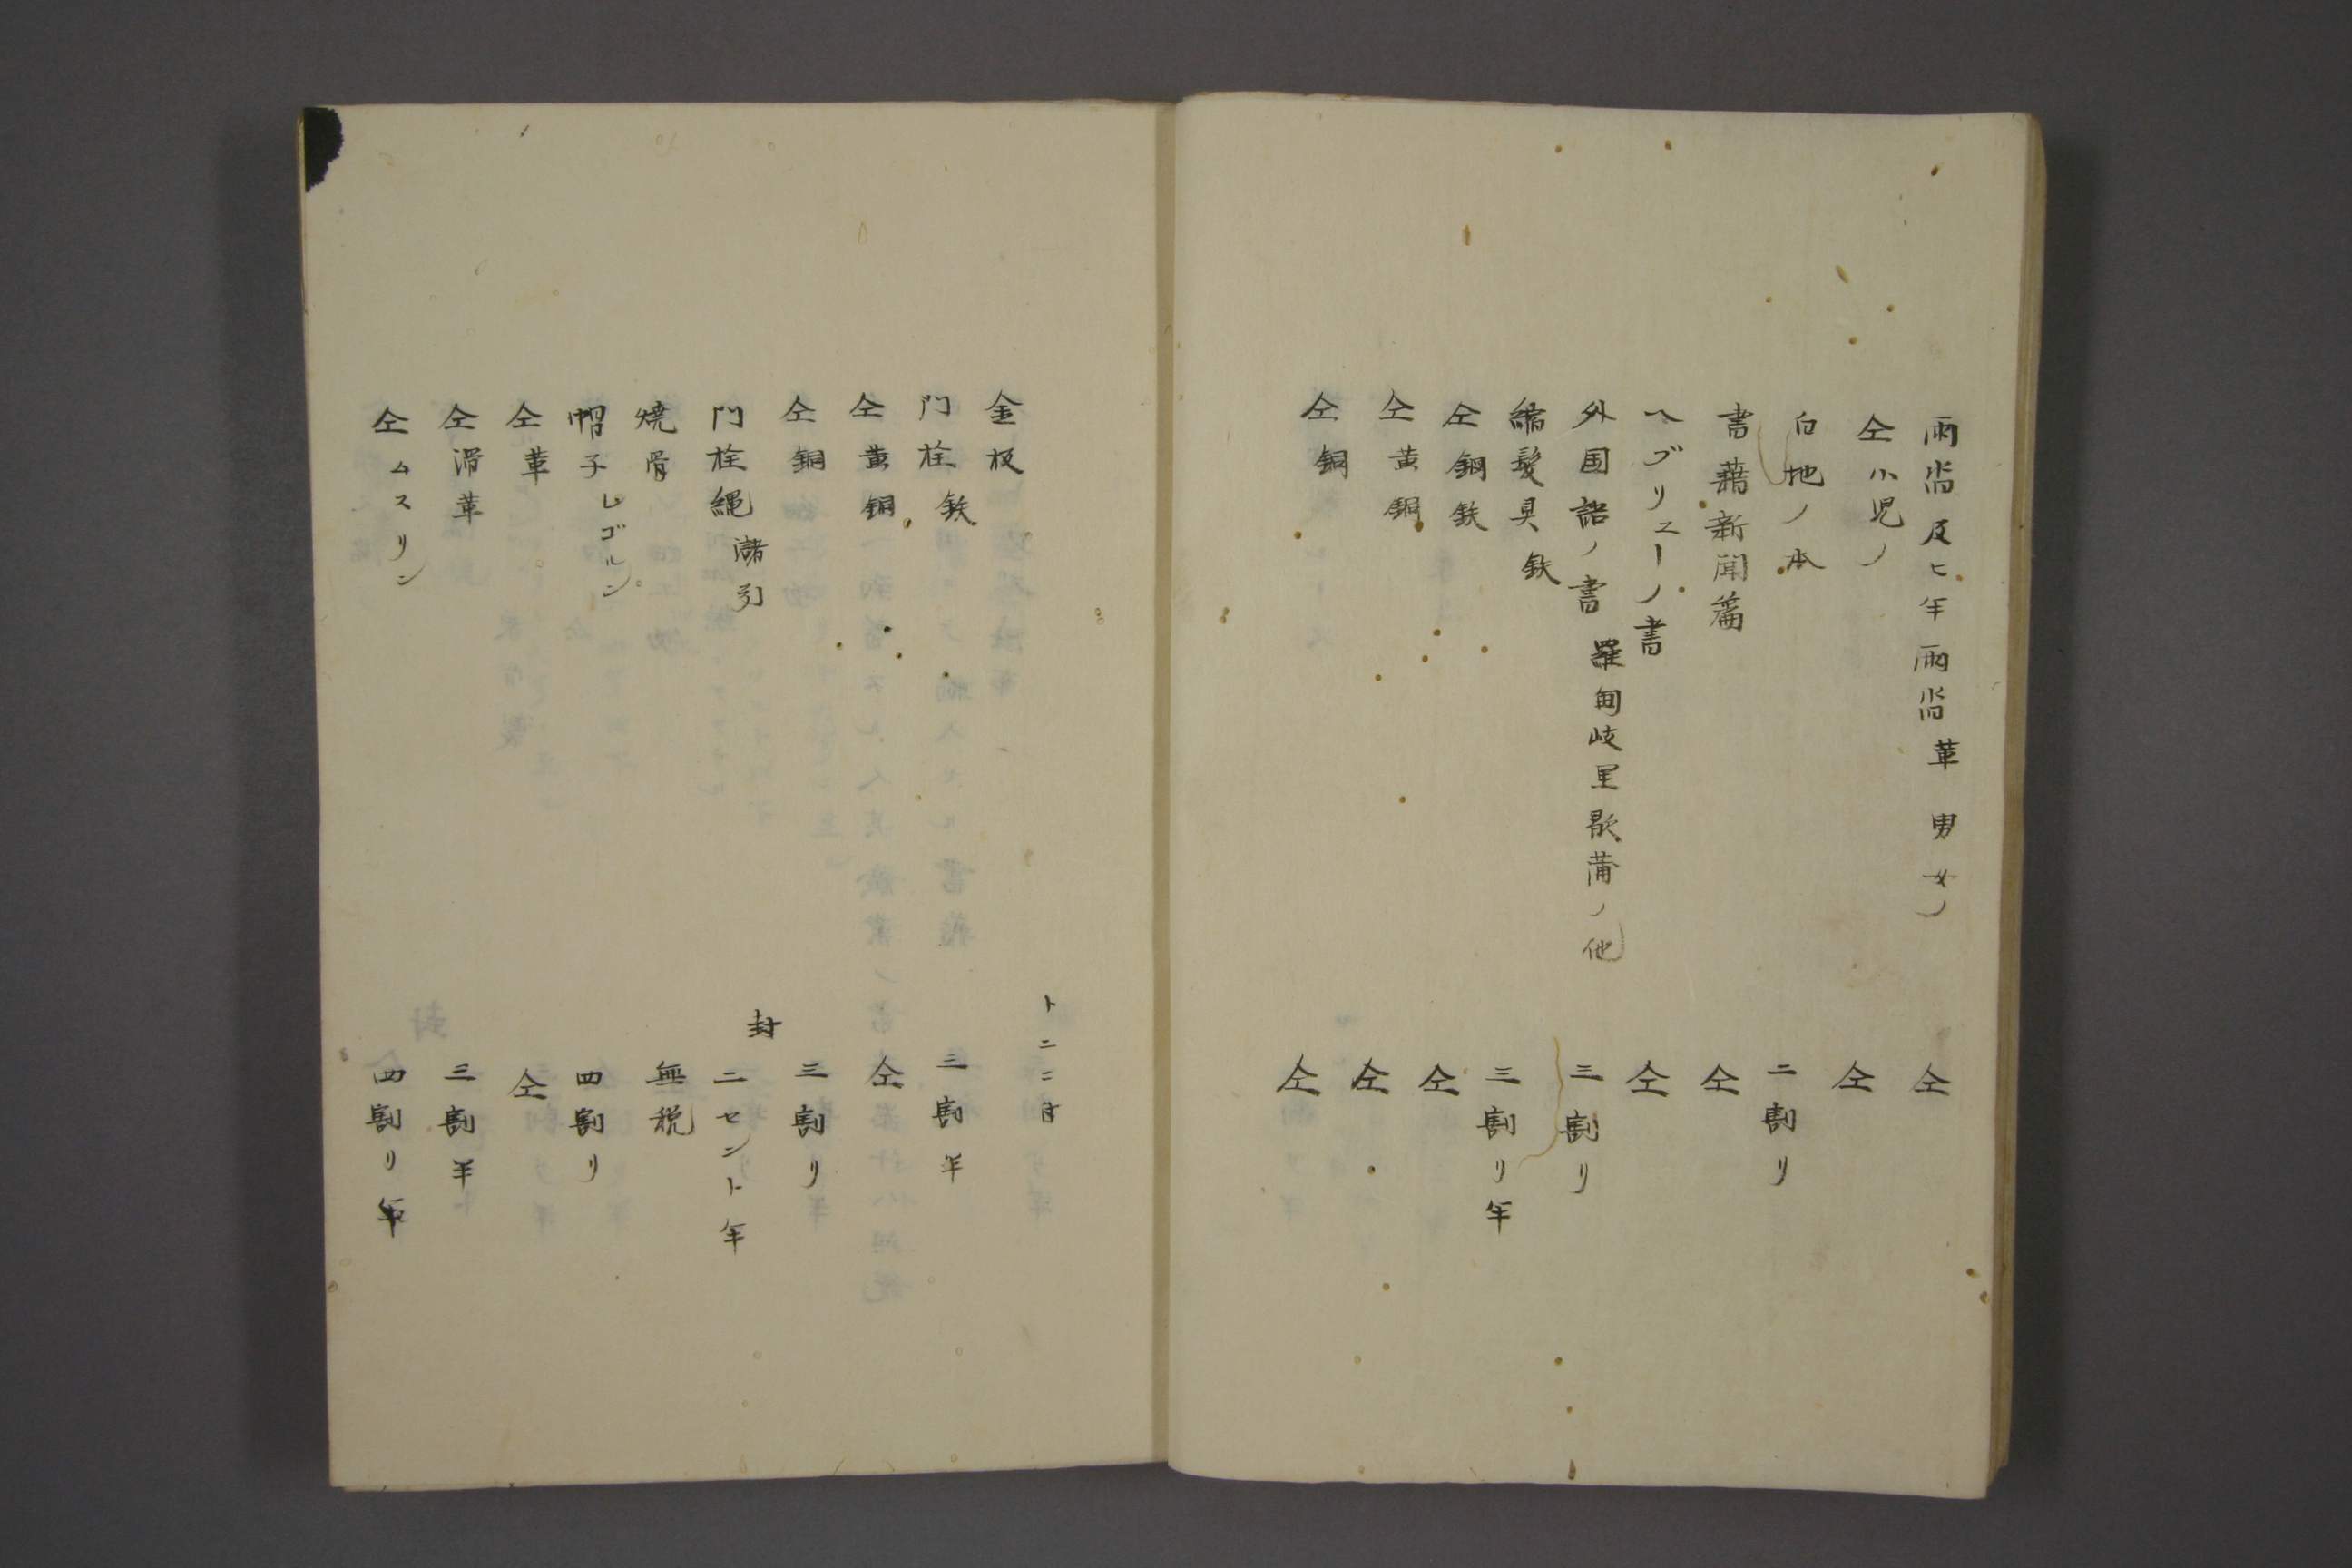 雨沓及ヒ半雨沓革 男女ノ 仝
仝小児ノ 仝
白地ノ本 二割リ
書藉新聞篇 仝
ヘブリユーノ書 仝
外国語ノ書 羅甸岐里歇蒲ノ他 三割リ
縮髪具 鉄 三割リ半
仝鋼鉄 仝
仝黄銅 仝
仝銅 仝
金板
門栓 鉄 三割半
仝黄銅 仝
仝銅 三割リ
門栓縄 瀦引 封 二セント半
焼骨 無税
帽子 レゴルン 四割リ
仝革 仝
仝滑革 三割半
仝ムスリン 四割リ半